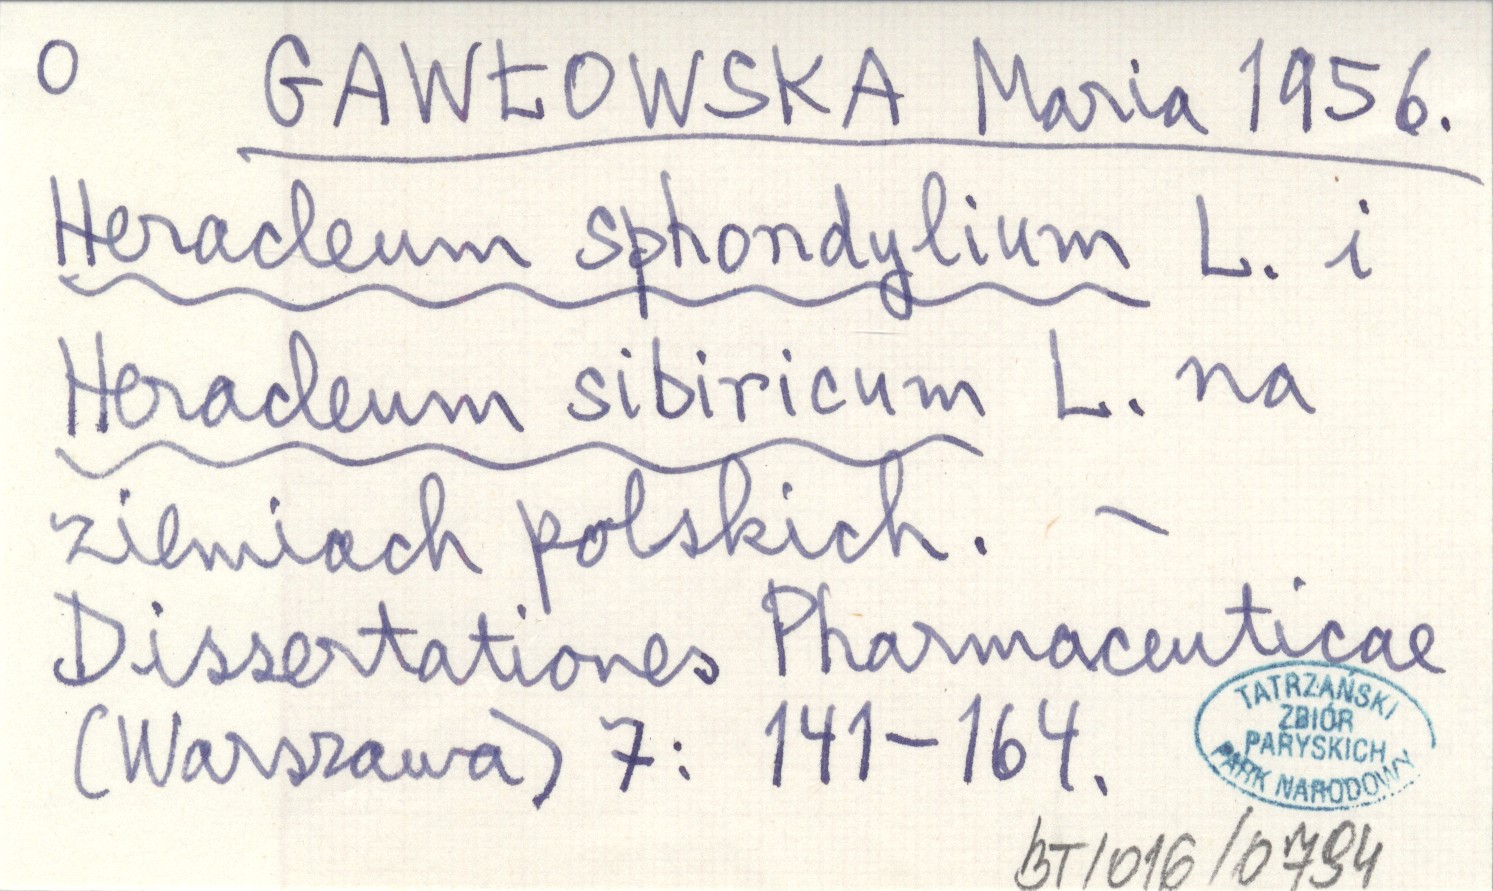 O GAWŁOWSKA Maria 1956.
Heracleum sphondylium L. i
Heracleum sibiricum L. na
ziemiach polskich. –
Dissertationes Pharmaceuticae
(Warszawa) 7: 141–164.
TATRZAŃSKI
ZBIÓR
PARYSKICH
PARK NARODOWY
BT/016/0794